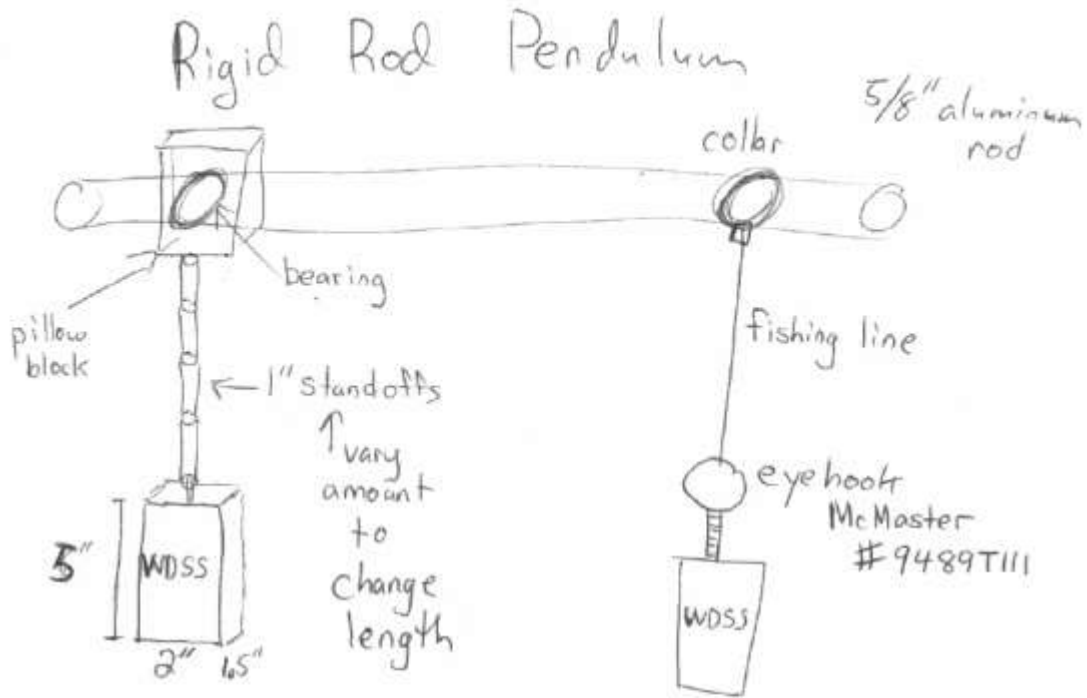 Rigid Rod Pendulum
5/8" aluminum
rod
collar
bearing
pillow
block
fishing line
1" standoffs
vary
amount
to
change
length
eyehook
McMaster
#9489T111
5"
WDSS
2" 1.5"
WDSS